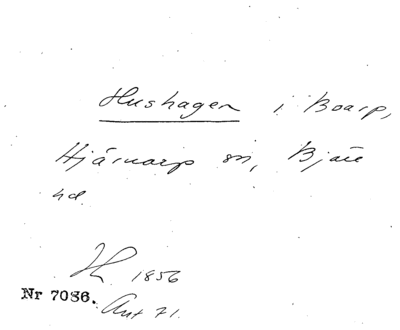 Hushagen i Boarp,
Hjärnarp sn, Bjäre
hd
1856
Nr 7086.
Ant 71.